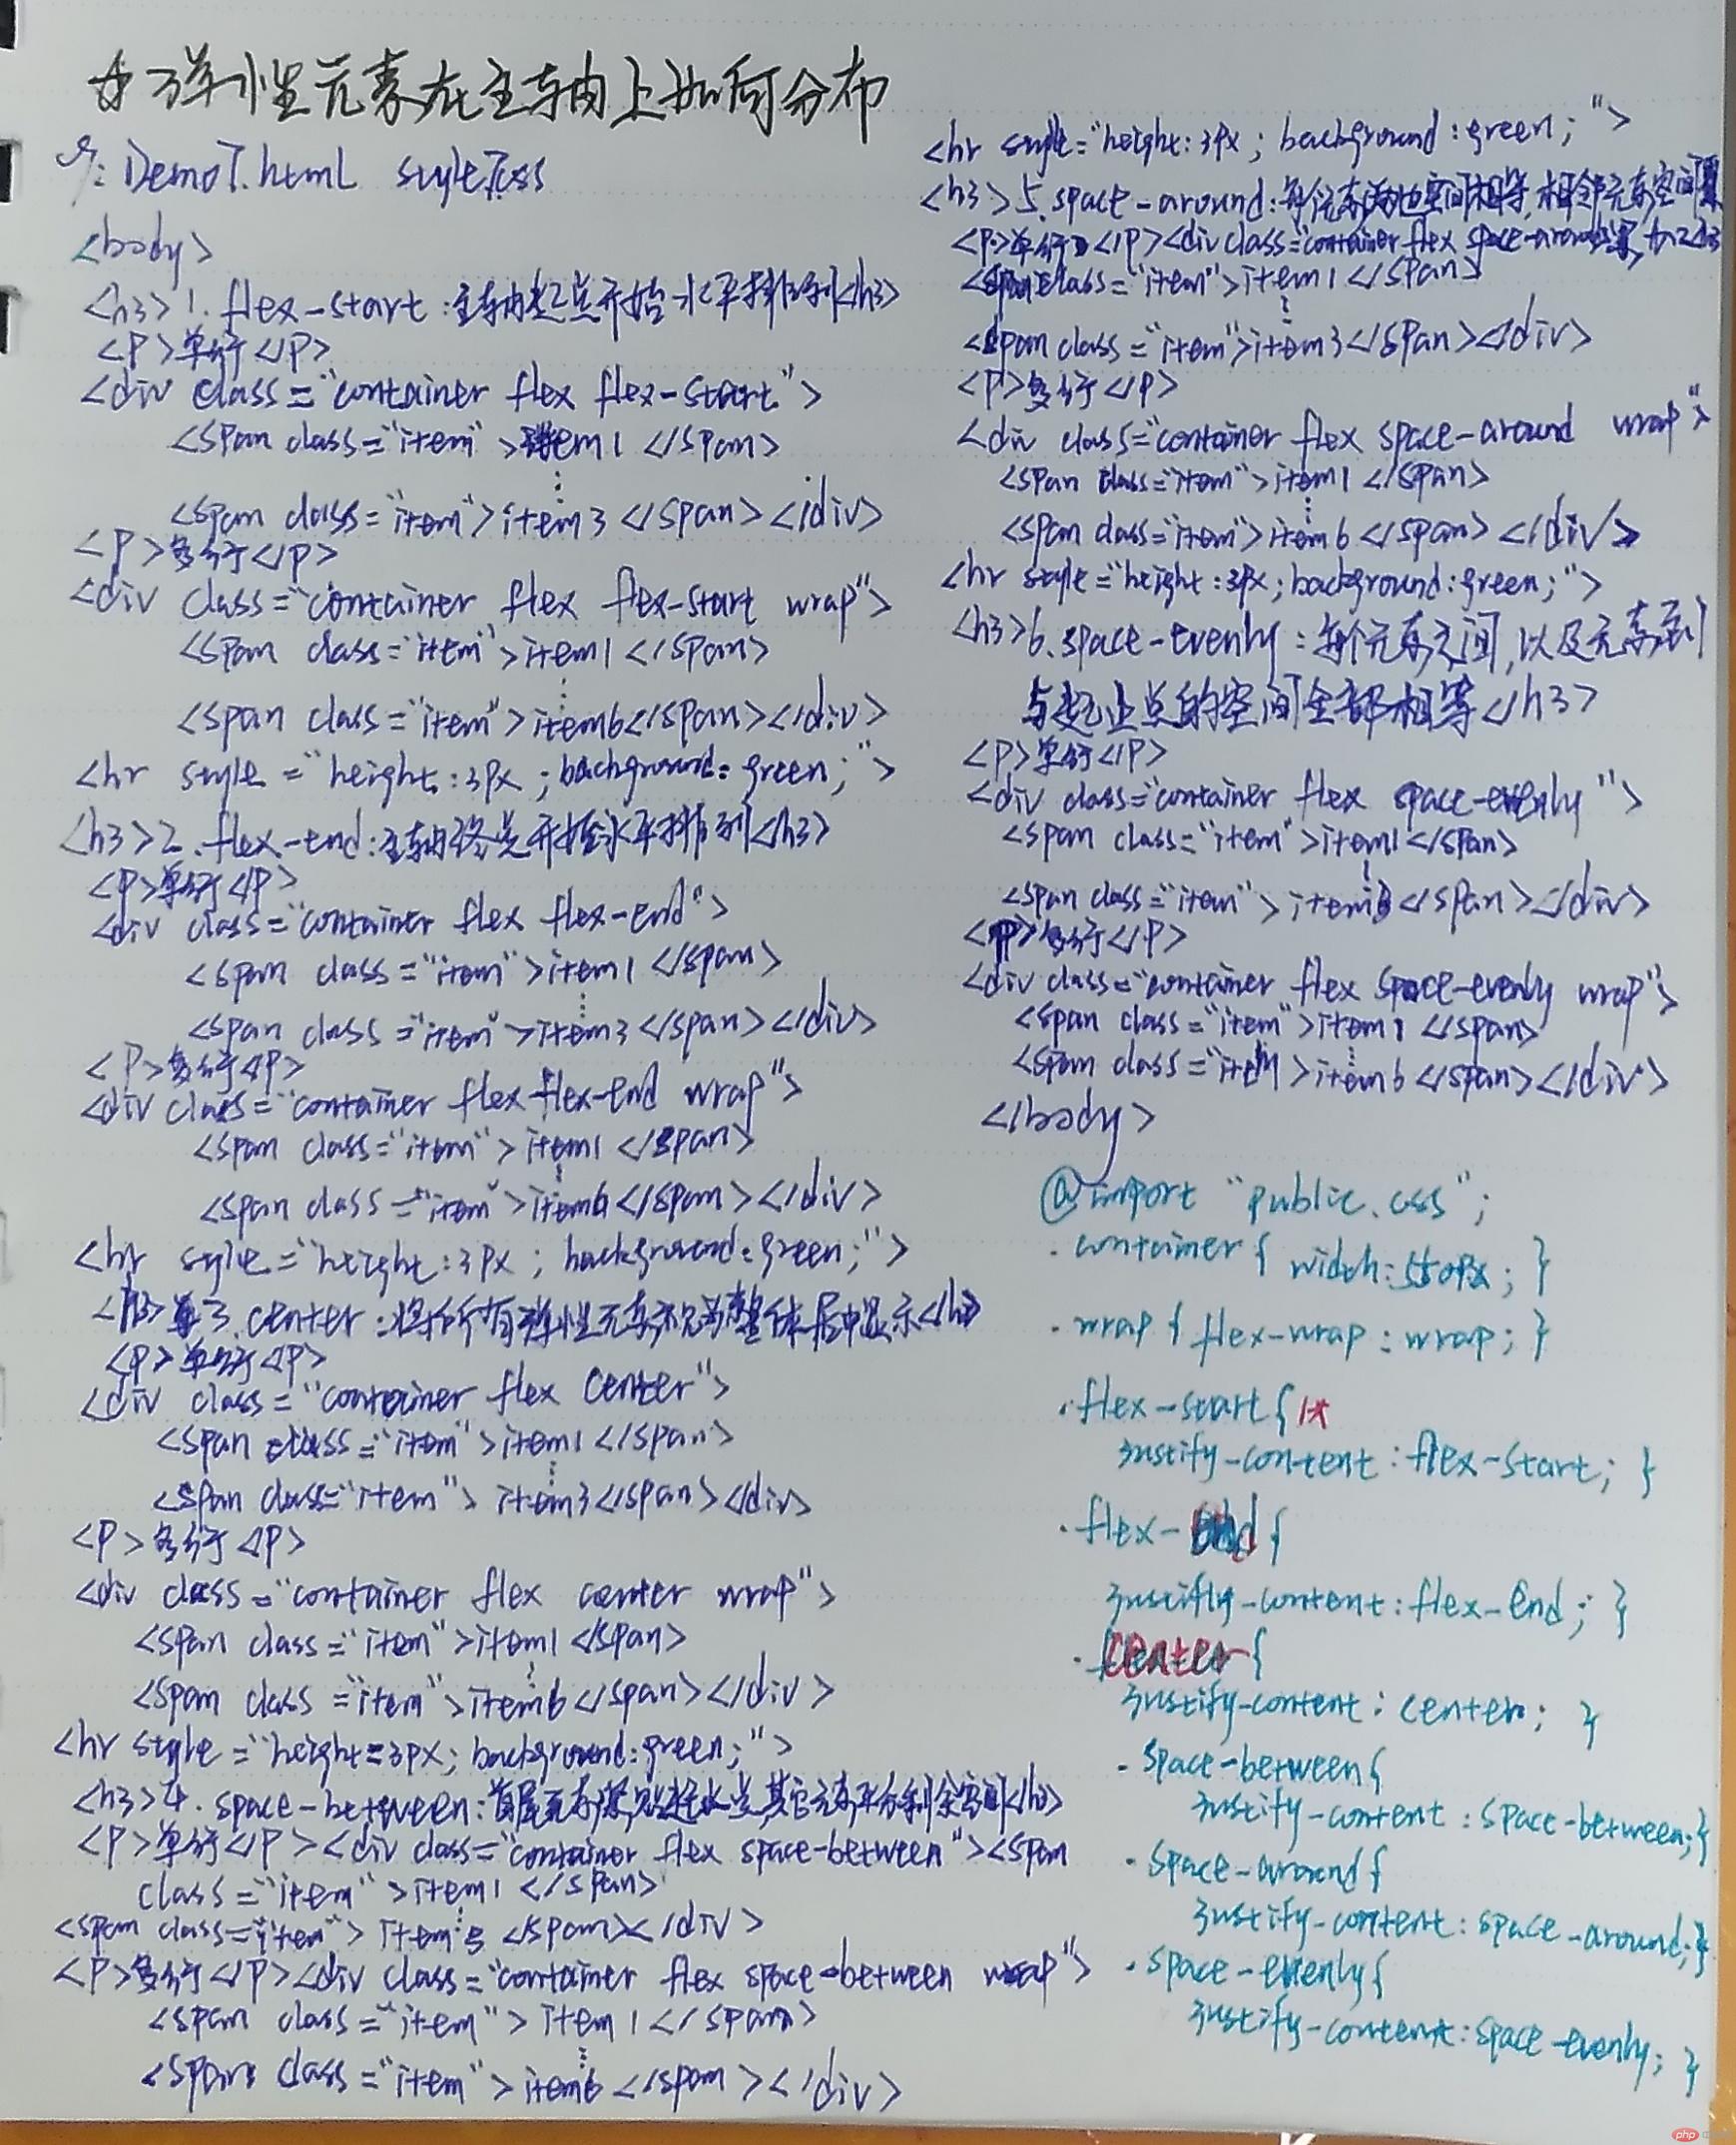 弹性元素在主轴上如何分布
Demo7.html style7.css
<body>
<h3>1.flex-start:主轴起点开始水平排列</h3>
<P>单行</P>
<div class="container flex flex-start">
<span class="item">item1</span>
⋮
<span class="item">item3</span></div>
<P>多行</P>
<div class="container flex flex-start wrap">
<span class="item">item1</span>
⋮
<span class="item">item6</span></div>
<hr style="height:3px;background:green;">
<h3>2.flex-end:主轴终点开始水平排列<h3>
<P>单行<P>
<div class="container flex flex-end">
<span class="item">item1</span>
⋮
<span class="item">item3</span></div>
<P>多行<P>
<div class="container flex flex-end wrap">
<span class="item">item1</span>
⋮
<span class="item">item6</span></div>
<hr style="height:3px;background:green;">
<h3>3.center:将所有弹性元素视为整体居中显示</h3>
<P>单行<P>
<div class="container flex center">
<span class="item">item1</span>
⋮
<span class="item">item3</span></div>
<P>多行<P>
<div class="container flex center wrap">
<span class="item">item1</span>
⋮
<span class="item">item6</span></div>
<hr style="height=3px;background:green;">
<h3>4.space-between:首尾元素 其它元素平分剩余空间</h3>
<P>单行</P><div class="container flex space-between"><span
class="item">item1</span>
⋮
<span class="item">item3</span></div>
<P>多行</P><div class="container flex space-between wrap">
<span class="item">item1</span>
⋮
<span class="item">item6</span></div>
<hr style="height:3px;background:green;">
<h3>5.space-around:每个元素两边空间相等,相邻元素空间
<P>单行</P><div class="container flex space-around
<span class="item">item1</span>
⋮
<span class="item">item3</span></div>
<P>多行</P>
<div class="container flex space-around wrap">
<span class="item">item1</span>
⋮
<span class="item">item6</span></div>
<hr style="height:3px;background:green;">
<h3>6.space-evenly:每个元素之间,以及元素到
与起止点的空间全部相等</h3>
<P>单行</P>
<div class="container flex space-evenly">
<span class="item">item1</span>
⋮
<span class="item">item3</span></div>
<P>多行</P>
<div class="container flex space-evenly wrap">
<span class="item">item1</span>
⋮
<span class="item">item6</span></div>
</body>
@import "public.css";
.container{width:550px;}
.wrap{flex-wrap:wrap;}
.flex-start{
justify-content:flex-start;}
.flex-end{
justifiy-content:flex-end;}
.center{
justify-content:center;}
.space-between{
justify-content:space-between;}
.space-around{
justify-content:space-around;}
.space-evenly{
justify-content:space-evenly;}
php